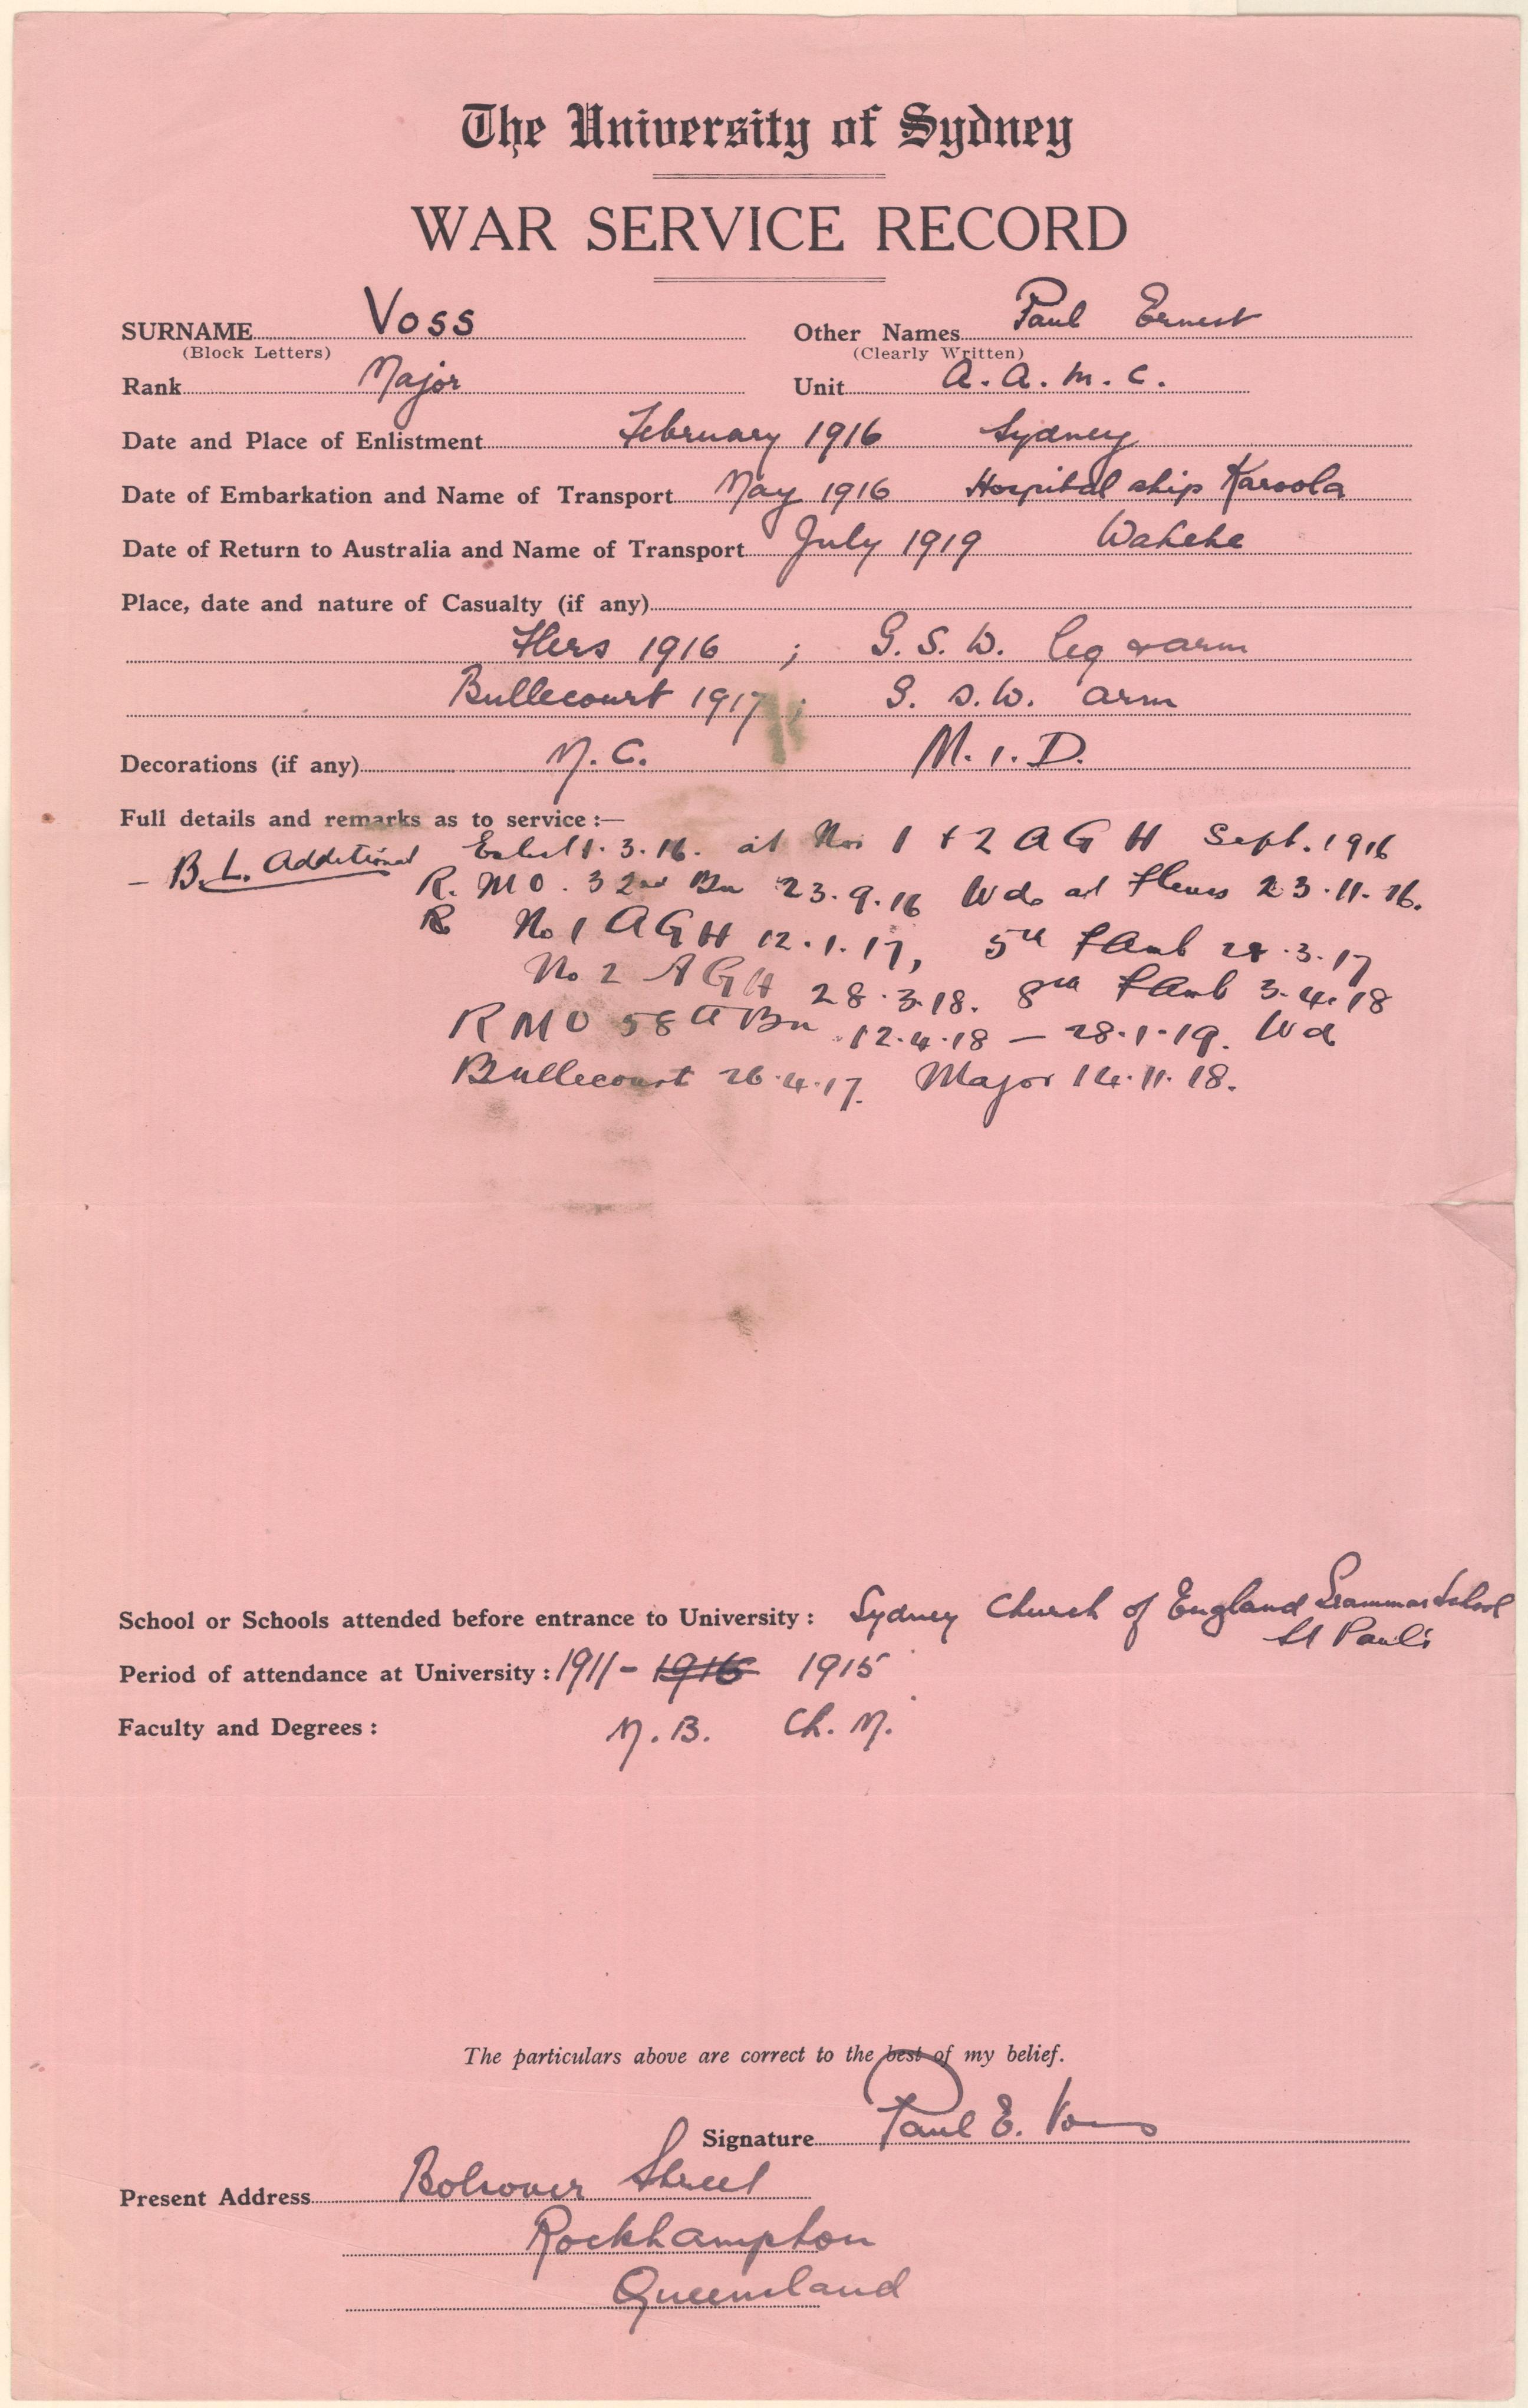 The University of Sydney
WAR SERVICE RECORD
SURNAME Voss Other Names Paul Ernest
(Block Letters) (Clearly Written)
Rank Major Unit A.A.M.C.
Date and Place of Enlistment February 1916 Sydney
Date of Embarkation and Name of Transport May 1916 Hospital ship Karoola
Date of Return to Australia and Name of Transport July 1919 Wahehe
Place, date and nature of Casualty (if any)
Flers 1916 ; G.S.W. leg & arm
Bullecourt 1917 ; G.S.W. arm
Decorations (if any) M.C. M.I.D.
Full details and remarks as to service :—
– B.L. Additional 1.3.16. at Nos 1 + 2 A G H Sept. 1916
R. M O. 32nd Bn 23.9.16 Wd. at Fleurs 23.11.16.
R No 1 A G H 12.1.17, 5th F Amb 28.3.17
No 2 A G H 28.3.18. 8th F Amb 3.4.18
R M O 58th Bn 12.4.18 — 28.1.19. Wd
Bullecourt 26.4.17. Major 14.11.18.
School or Schools attended before entrance to University : Sydney Church of England Grammar School
St Paul's
Period of attendance at University : 1911 - 1916 1915
Faculty and Degrees : M.B. Ch.M.
The particulars above are correct to the best of my belief.
Signature Paul E. Voss
Present Address Bolsover Street
Rockhampton
Queensland